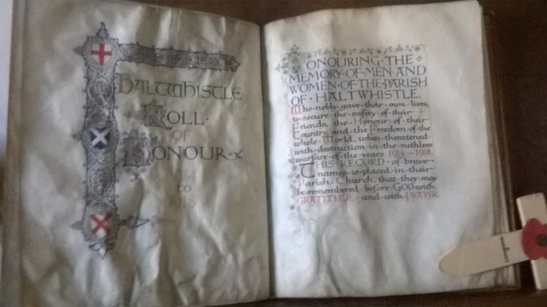 HALTWHISTLE
ROLL
OF
HONOUR
to
HONOURING · THE
MEMORY · OF · MEN · AND
WOMEN · OF · THE · PARISH
OF · HALTWHISTLE
Who · nobly · gave · their · own · lives,
to · secure · the · safety · of · their
Friends, the · Honour · of · their
Country, and · the · Freedom · of · the
whole · World, when · threatened
with · destruction · in · the · ruthless
warfare · of · the · years 1914 – 1918.
THIS · RECORD · of · brave
names · is · placed · in · their
Parish · Church, that · they · may
be · remembered · before · GOD · with
GRATITUDE · and · with · PRAYER.